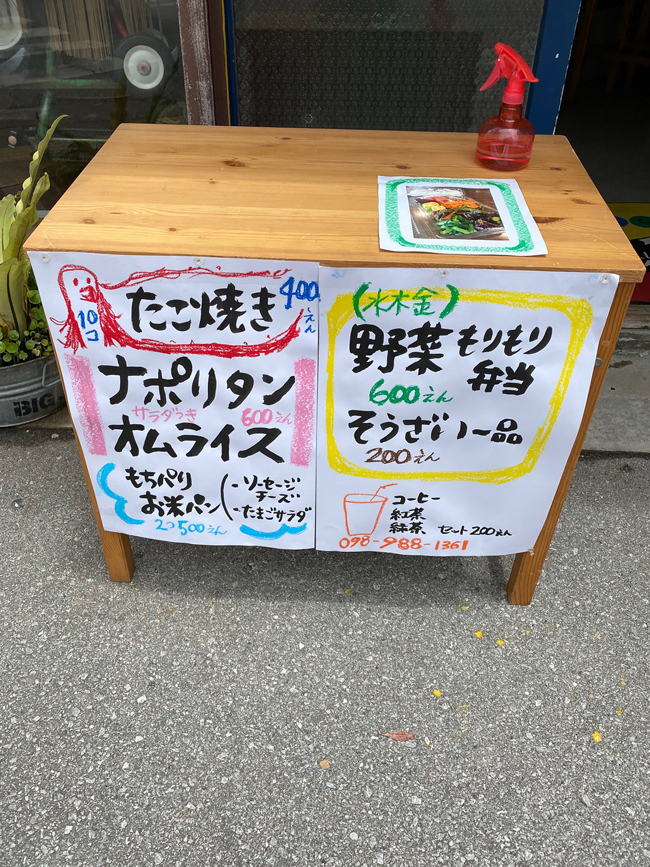 10コ
たこ焼き
400えん
ナポリタン
サラダつき 600えん
オムライス
もちパリ
お米パン
ソーセージ
チーズ
たまごサラダ
2コ500えん
(水木金)
野菜もりもり
弁当
600えん
そうざい一品
200えん
コーヒー
紅茶
緑茶 セット200えん
098-988-1361
BIG